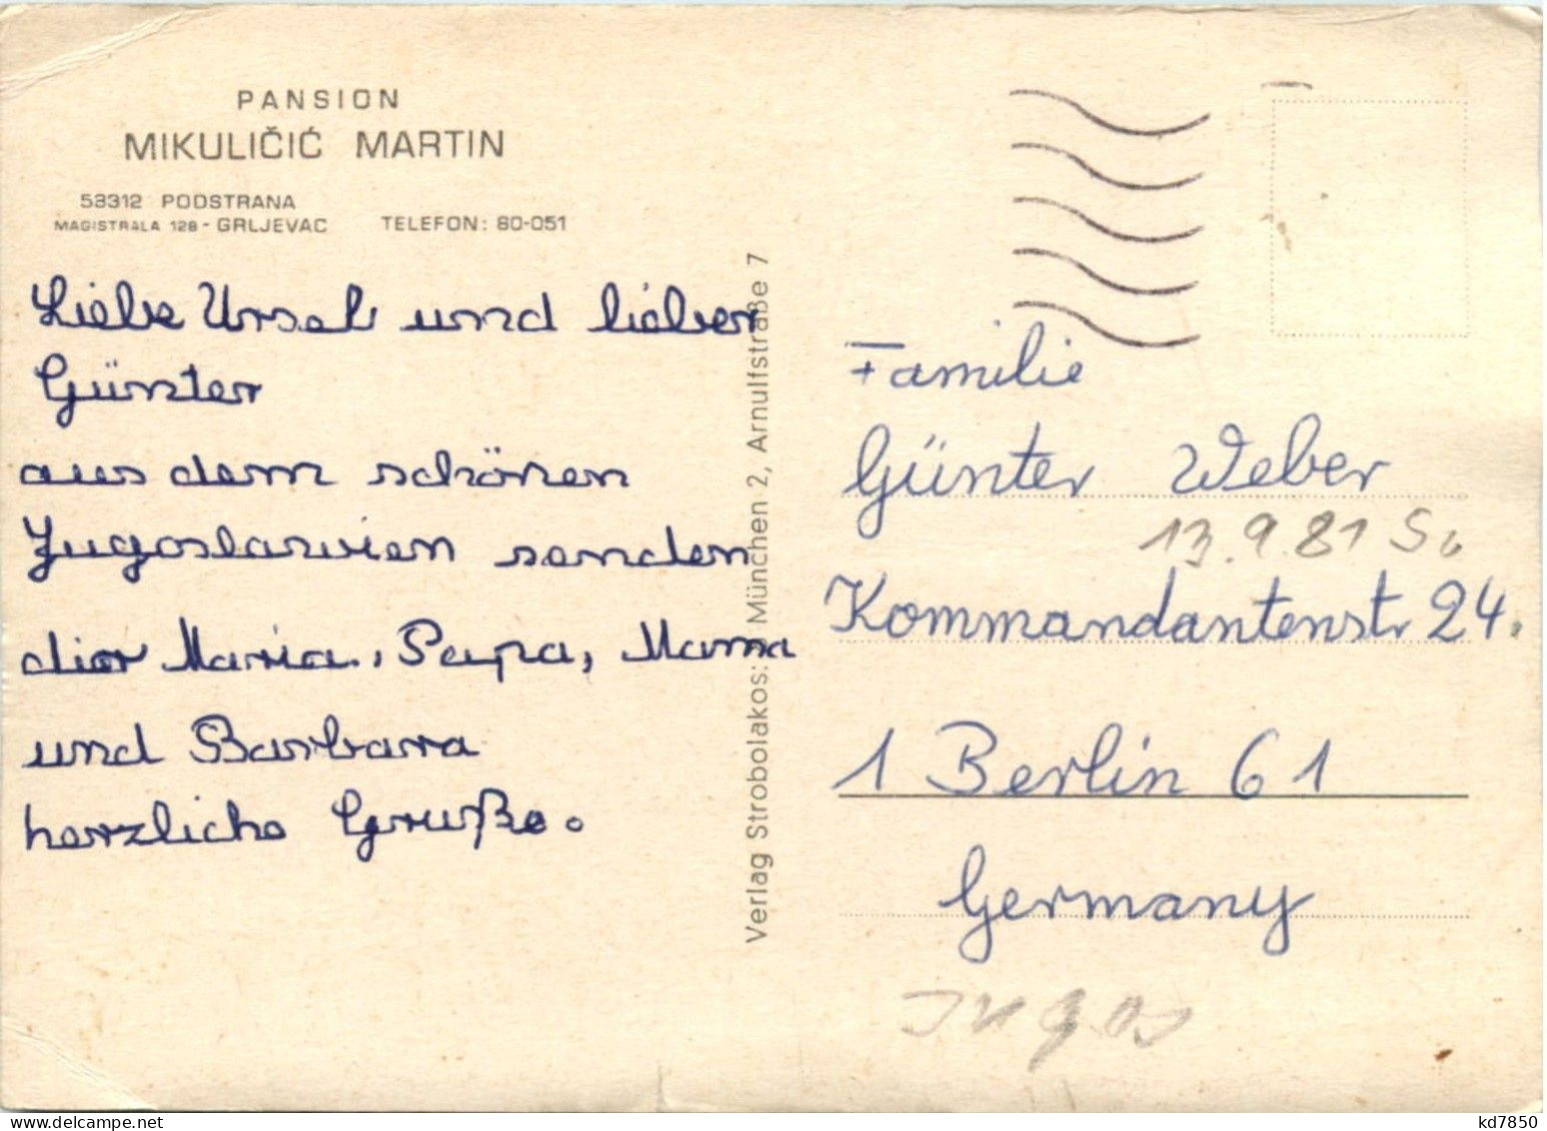 PANSION
MIKULIČIĆ MARTIN
58312 PODSTRANA
MAGISTRALA 128 - GRLJEVAC TELEFON: 80-051
Liebe Ursel und lieber
Günter
aus dem schönen
Jugoslawien senden
dior Maria, Papa, Mama
und Barbara
herzliche Gruße.
Verlag Strobolakos: 8 München 2, Arnulfstraße 7
Familie
Günter Weber
13.9.81 So
Kommandantenstr 24.
1 Berlin 61
Germany
Jugos
delcampe.net
kd7850